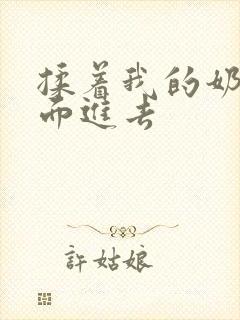 揉着我的奶
而進去
許姑娘